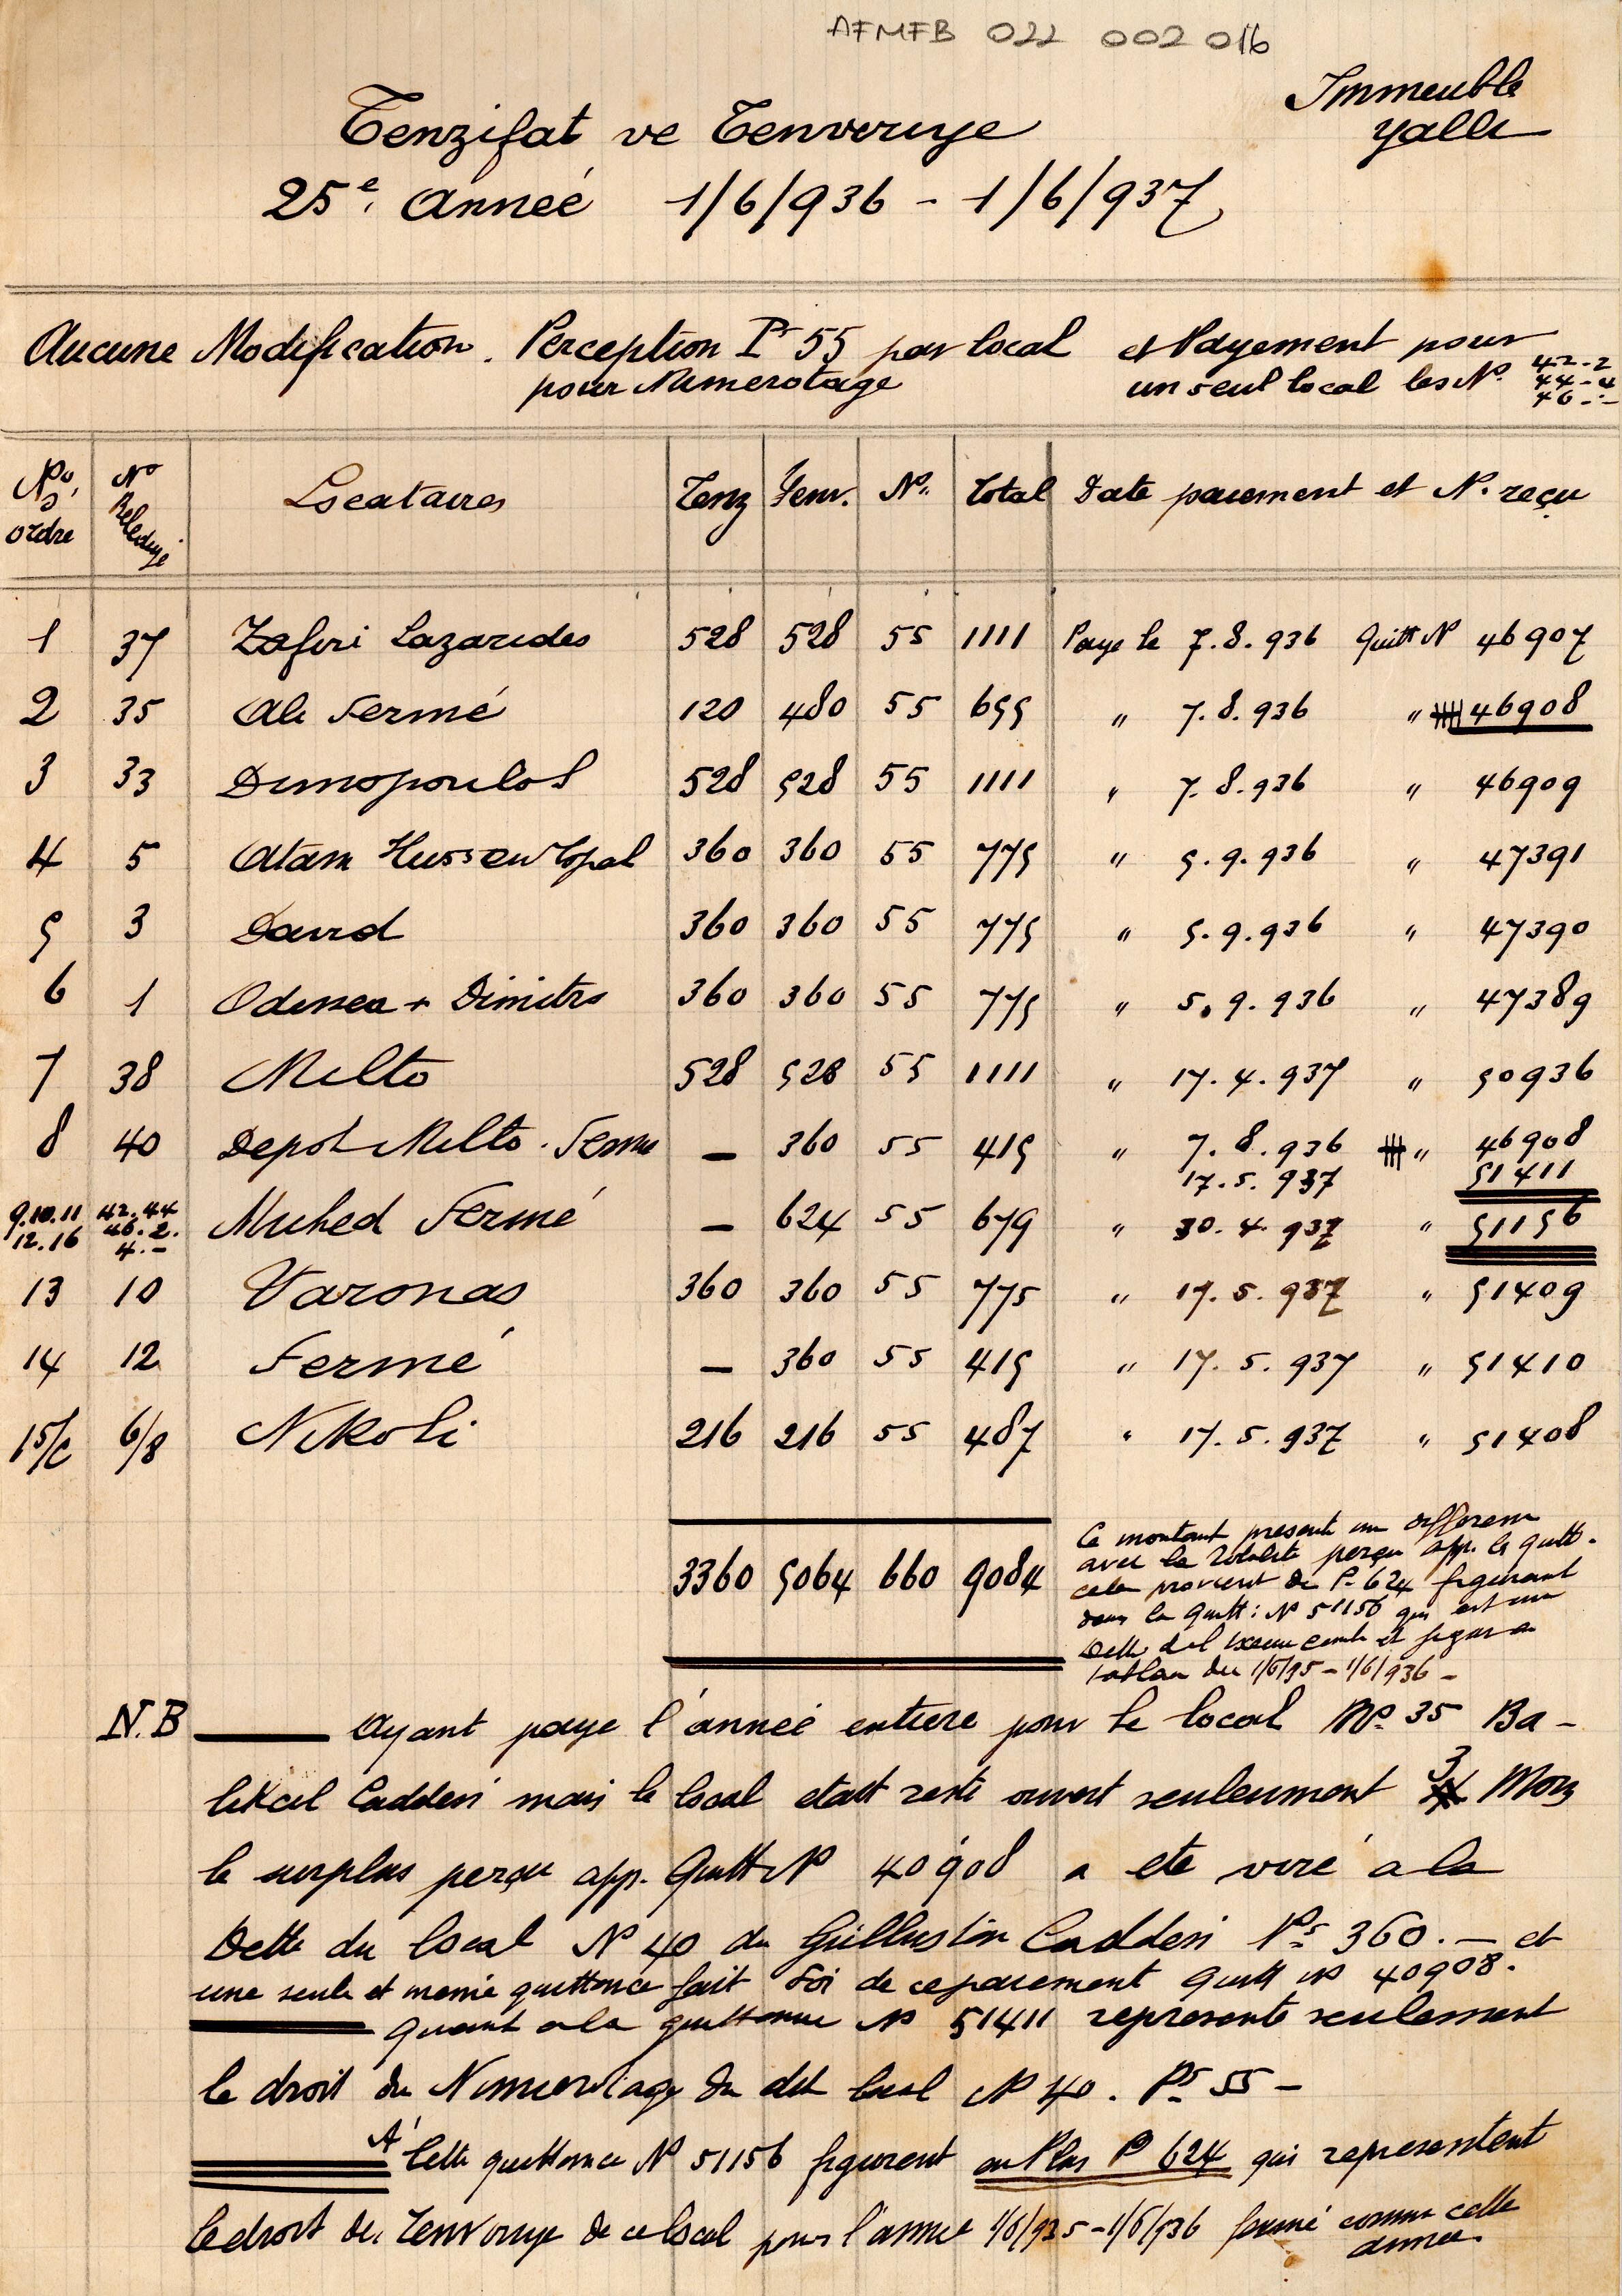 AFMFB 022 002 016
Immeuble
Yalli
Tenzifat ve Tenveruye
25e. Anneé 1/6/936 - 1/6/937
Aucune Modification. Perception Ps 55 par local et Payement pour
pour Numerotage un seul local les No. 42-2
44-4
46 - -
No. ordre No Belediyé Locataires Tenz Tenv. No. Total Date paiement et N. reçu
1 37 Zafiri Lazarides 528 528 55 1111 Paye le 7.8.936 Quitt No 46907
2 35 Ali Fermé 120 480 55 655 " 7.8.936 " 46908
3 33 Dimopoulos 528 528 55 1111 " 7.8.936 " 46909
4 5 Atam Hussein Topal 360 360 55 775 " 5.9.936 " 47391
5 3 David 360 360 55 775 " 5.9.936 " 47390
6 1 Odissea + Dimitro 360 360 55 775 " 5.9.936 " 47389
7 38 Milto 528 528 55 1111 " 17.4.937 " 50936
8 40 Depot Milto. Ferme — 360 55 415 " 7.8.936 " 46908
17.5.937 51411
9.10.11 42.44
12.16 46.2. Muhed Fermé — 624 55 679 " 30.4.937 " 51156
4.-
13 10 Varonas 360 360 55 775 " 17.5.937 " 51409
14 12 Fermé — 360 55 415 " 17.5.937 " 51410
15/c 6/8 Nikoli 216 216 55 487 " 17.5.937 " 51408
3360 5064 660 9084
Ce montant presente un differem
avec la Totalite perçu app. la quitt.
cela provient de P. 624 figurant
dans la Quitt: No 51156 qui est un
Dette del et figure
tablau du 1/6/95 - 1/6/936 -
N.B — Ayant paye l'anneé entiere pour le local No. 35 Ba-
likcil Caddesi mais le local etait resté ouvert seuleument 3 Mois
le surplus perçu app. Quitt No 40908 a ete viré a la
Dette du local No 40 du Gülluslin Caddesi Ps 360. — et
une seule et meme quittance fait foi de ce paiement Quitt No 40908.
— Quant a la quittance No 51411 represente seulement
le droit du Numerotage du dit local No 40. Ps 55 -
A' Cette quittance No 51156 figurent en Plus P 624 qui representent
le droit de Tenviruye de ce local pour l'anneé 1/6/935 - 1/6/936 fermé comme cette
année.